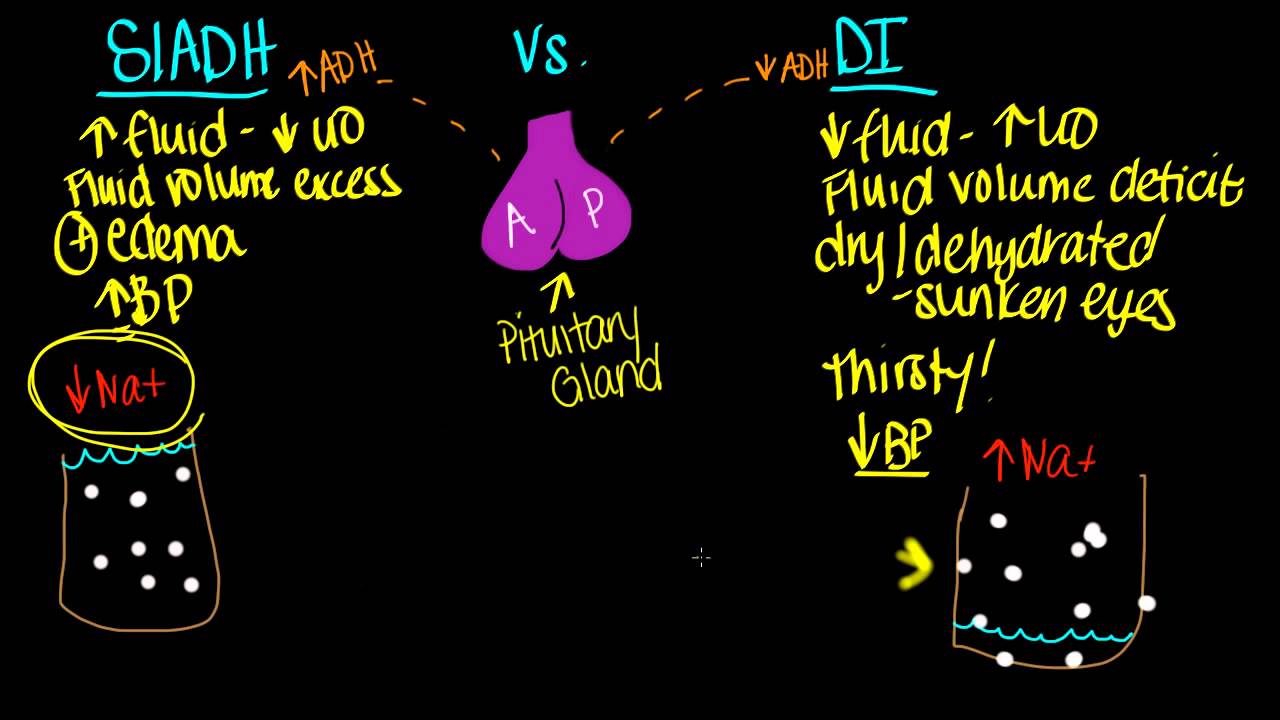 SIADH
↑ADH
↑ fluid - ↓ UO
Fluid volume excess
⊕ edema
↑BP
↓Na+
Vs.
A P
↑
Pituitary
Gland
↓ADH
DI
↓ fluid - ↑ UO
Fluid volume deficit
dry/dehydrated
-sunken eyes
thirsty!
↓BP
↑Na+